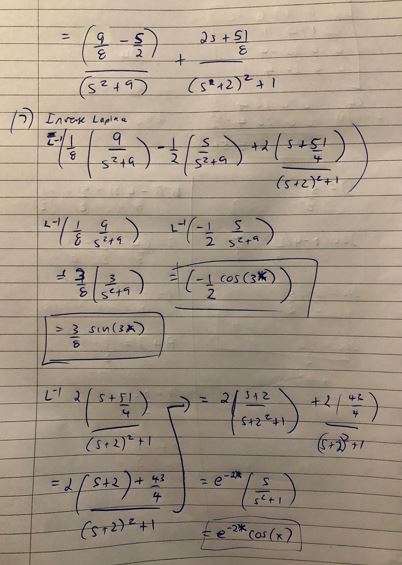 = (9/8 - s/2) / (s²+9) + (2s + 51/8) / (s²+2)²+1
(7) Inverse Laplace
L⁻¹ ( 1/8 ( 9 / s²+9 ) - 1/2 ( s / s²+9 ) + 2 ( s + 51/4 ) / (s+2)²+1 )
L⁻¹ ( 1/8 9 / s²+9 ) L⁻¹ ( -1/2 s / s²+9 )
= 3/8 ( 3 / s²+9 ) = ( -1/2 cos(3x) )
= 3/8 sin(3x)
L⁻¹ 2 ( s + 51/4 ) / (s+2)²+1 = 2 ( s+2 / s+2²+1 ) + 2 ( 43/4 ) / (s+2)²+1
= 2 ( (s+2) + 43/4 ) / (s+2)²+1 = e^-2x ( s / s²+1 )
= e^-2x cos(x)